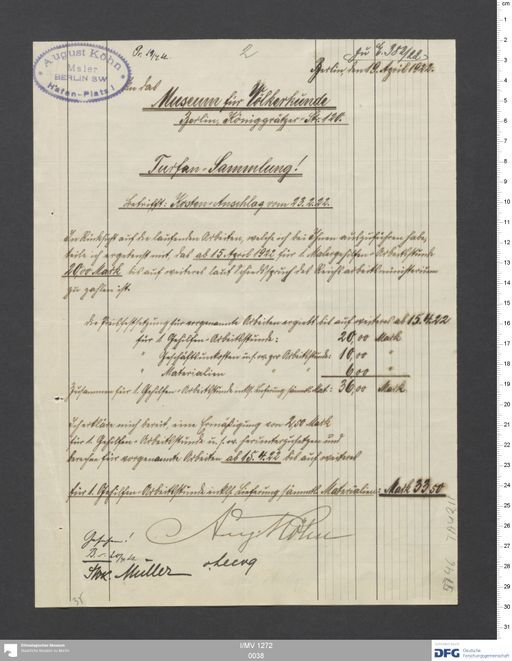 August Köhn
Maler
BERLIN SW
Hafen-Platz 1
Pr. 19/4 22.
2
Zu E. 382/22.
Berlin, den 19. April 1922.
An das
Museum für Völkerkunde
Berlin, Königgrätzer-Str. 120.
Turfan-Sammlung!
Betrifft: Kosten-Anschlag vom 23.2.22.
In Rücksicht auf die laufenden Arbeiten, welche ich bei Ihnen auszuführen habe,
teile ich ergebenst mit, das ab 15. April 1922 für 1. Malergehilfen-Arbeitsstunde
20,00 Mark bis auf weiteres laut Schiedsspruch des Reichsarbeitsministerium
zu zahlen ist.
die Preisfestsetzung für vorgenannte Arbeiten ergiebt bis auf weiteres ab 15.4.22
für 1. Gehilfen-Arbeitsstunde: 20,00 Mark
" Geschäftsunkosten u.s.w. pro Arbeitsstunde: 10,00 "
" Materialien " " 6,00 "
Zusammen für 1. Gehilfen-Arbeitsstunde inkl. Lieferung sämtl. Mat: 36,00 Mark
Ich erkläre mich bereit, eine Ermäßigung von 2,50 Mark
für 1. Gehilfen-Arbeitsstunde u.s.w. herunterzusetzen und
berechne für vorgenannte Arbeiten ab 15.4.22 bis auf weiteres
für 1. Gehilfen-Arbeitsstunde inkl. Lieferung sämmtl. Materialien: Mark 33,50
Aug Köhn
Gesehen!
B. 20/4 22
Müller
Lecoq
38
I/MV 1272
0038
Ethnologisches Museum
Staatliche Museen zu Berlin
DFG Deutsche
Forschungsgemeinschaft